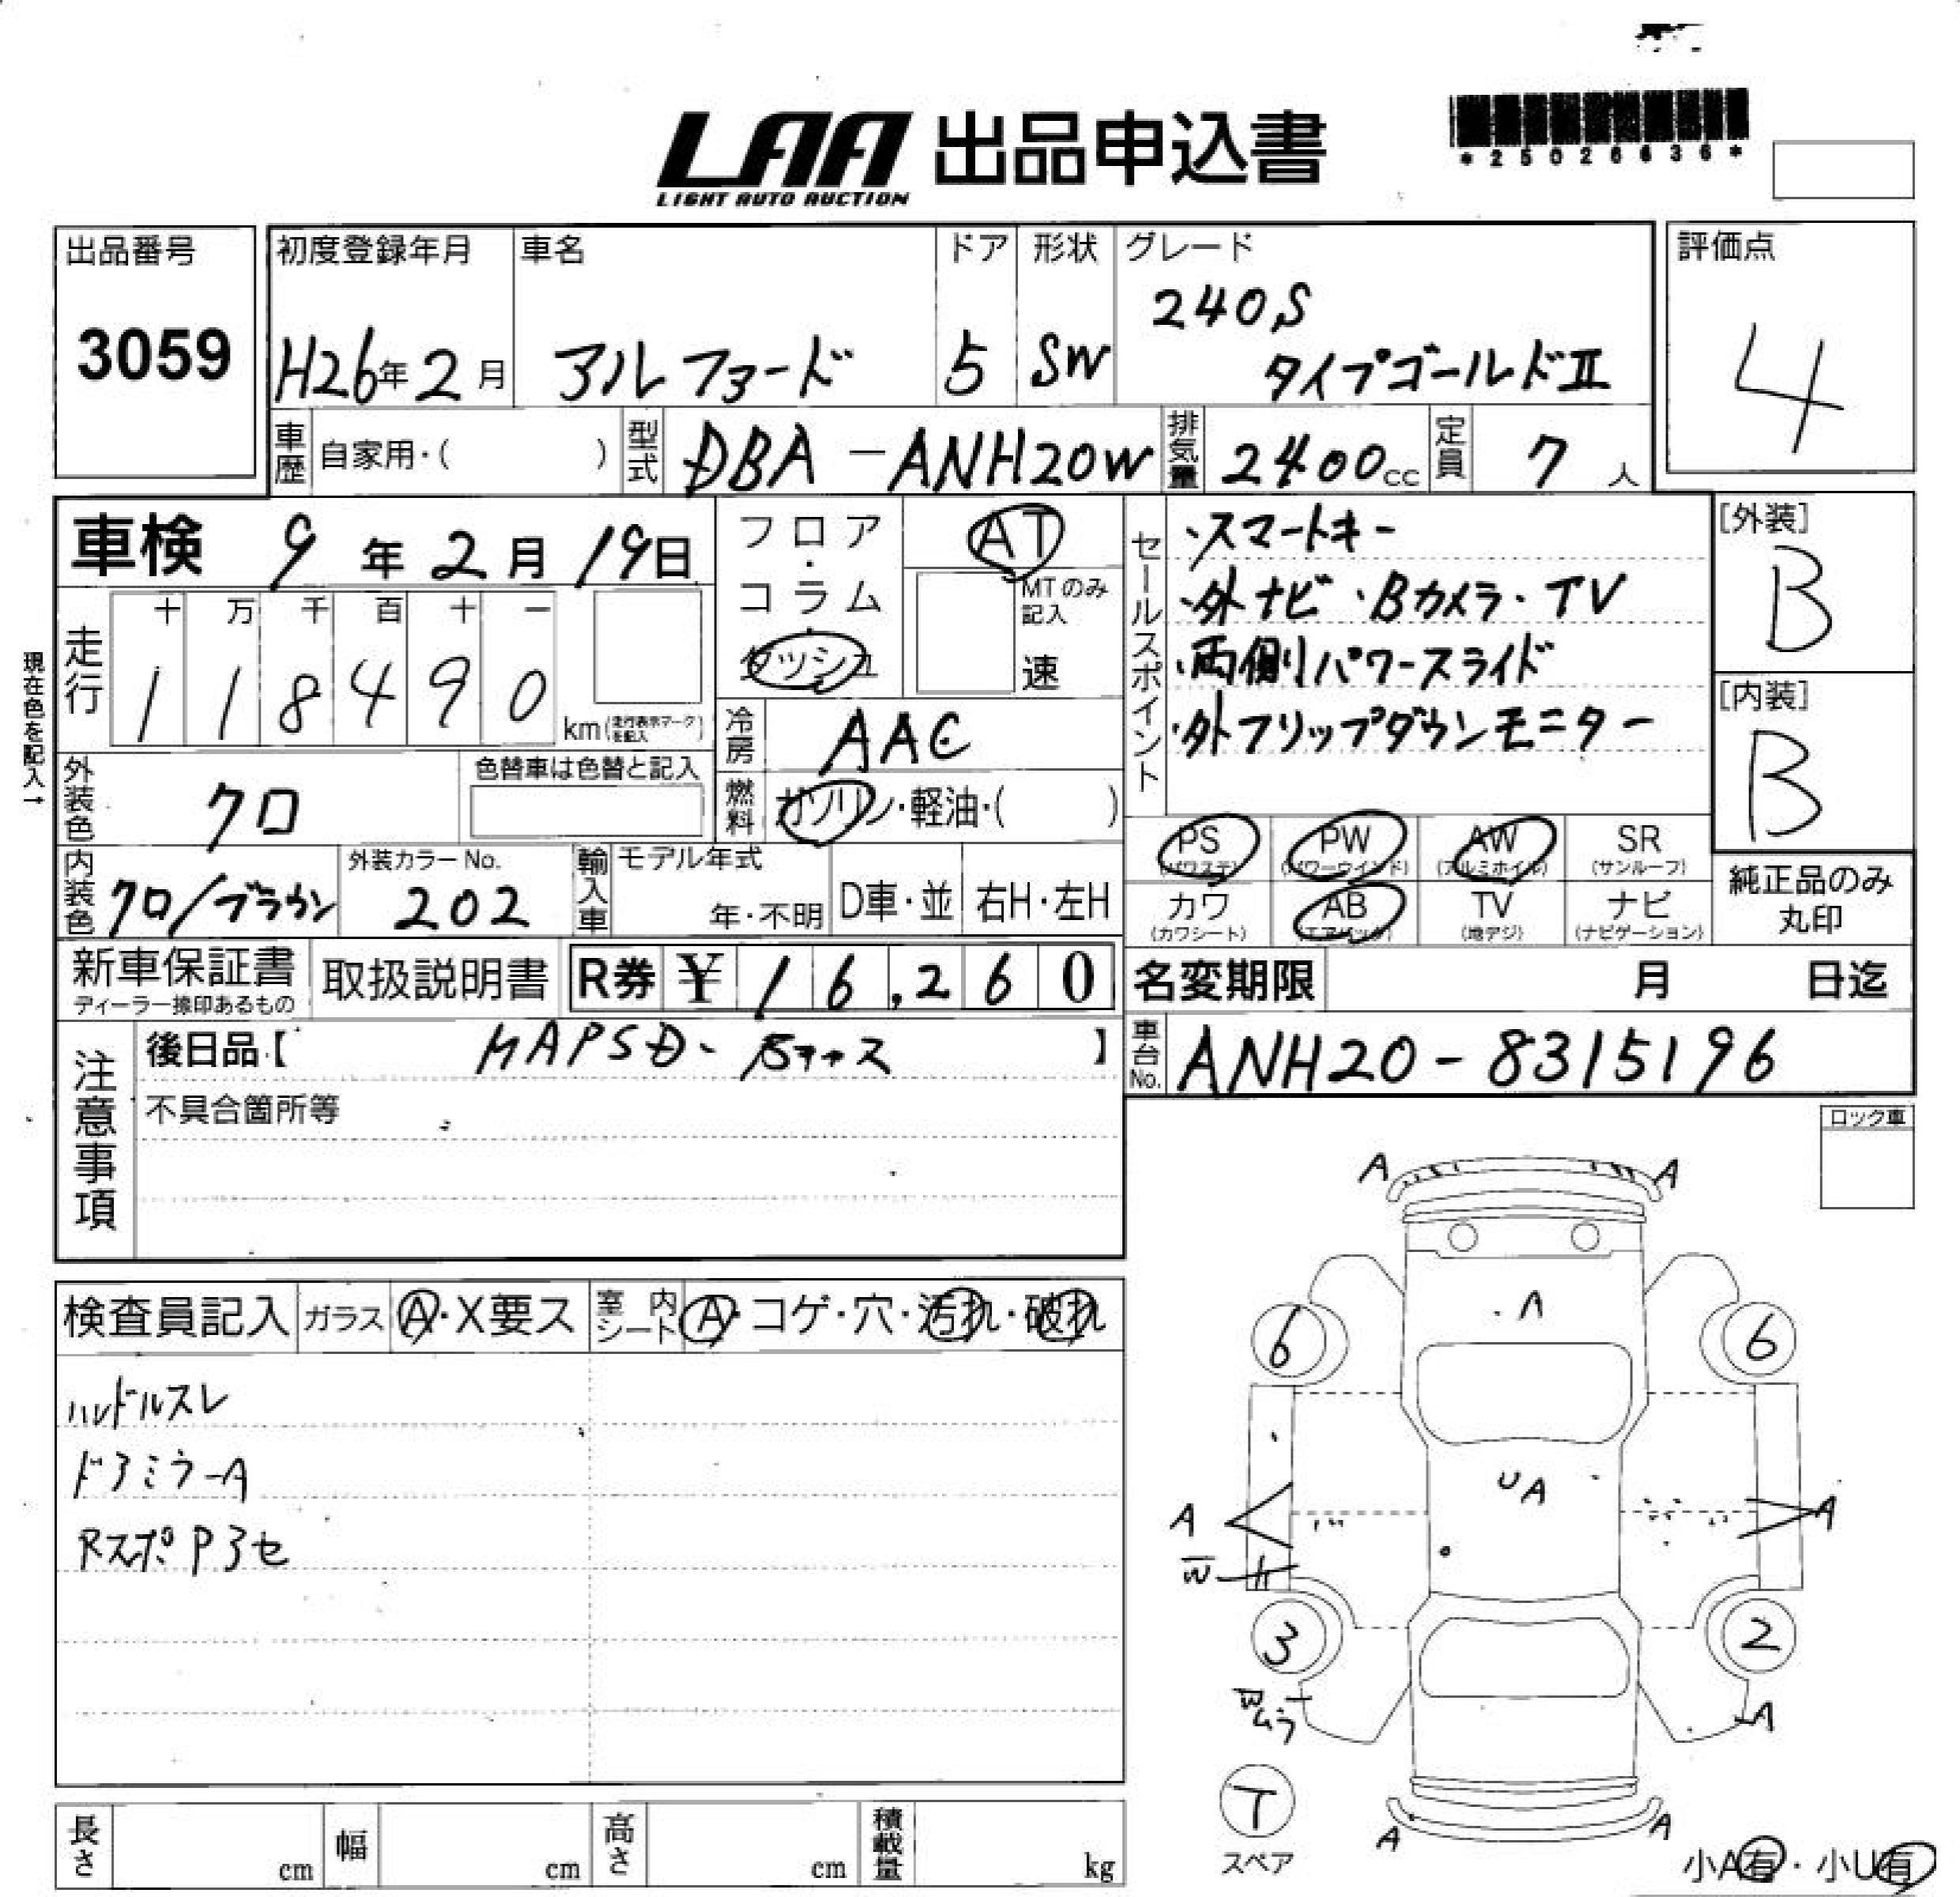 LAA 出品申込書
LIGHT AUTO AUCTION
*25026636*
出品番号
3059
初度登録年月
H26年2月
車名
アルファード
ドア
5
形状
SW
グレード
240S
タイプゴールドⅡ
評価点
4
車歴 自家用・( )
型式 DBA-ANH20W
排気量 2400cc
定員 7人
車検 9年2月19日
フロア・コラム・ダッシュ
AT
MTのみ記入
速
現在色を記入→
走行
十 万 千 百 十 一
1 1 8 4 9 0
km(走行表示マークを記入)
冷房 AAC
燃料 ガソリン・軽油・( )
外装色 クロ
色替車は色替と記入
内装色 クロ/ブラウン
外装カラーNo.
202
輸入車
モデル年式
年・不明
D車・並
右H・左H
セールスポイント
・スマートキー
・外ナビ・Bカメラ・TV
・両側パワースライド
・外フリップダウンモニター
[外装]
B
[内装]
B
PS (パワステ)
PW (パワーウインド)
AW (アルミホイル)
SR (サンルーフ)
カワ (カワシート)
AB (エアバッグ)
TV (地デジ)
ナビ (ナビゲーション)
純正品のみ
丸印
新車保証書
ディーラー捺印あるもの
取扱説明書
R券 ¥16,260
名変期限 月 日迄
車台No. ANH20-8315196
注意事項
後日品【 】
不具合箇所等
ロック車
検査員記入
ガラス A・X要ス
室内シート A・コゲ・穴・汚れ・破れ
ハンドルスレ
ドアミラーA
RスポP3セ
A A
A
6 6
UA
A A
W
3 2
W
ムラ
A
T
スペア
A A
小A有・小U有
長さ cm
幅 cm
高さ cm
積載量 kg